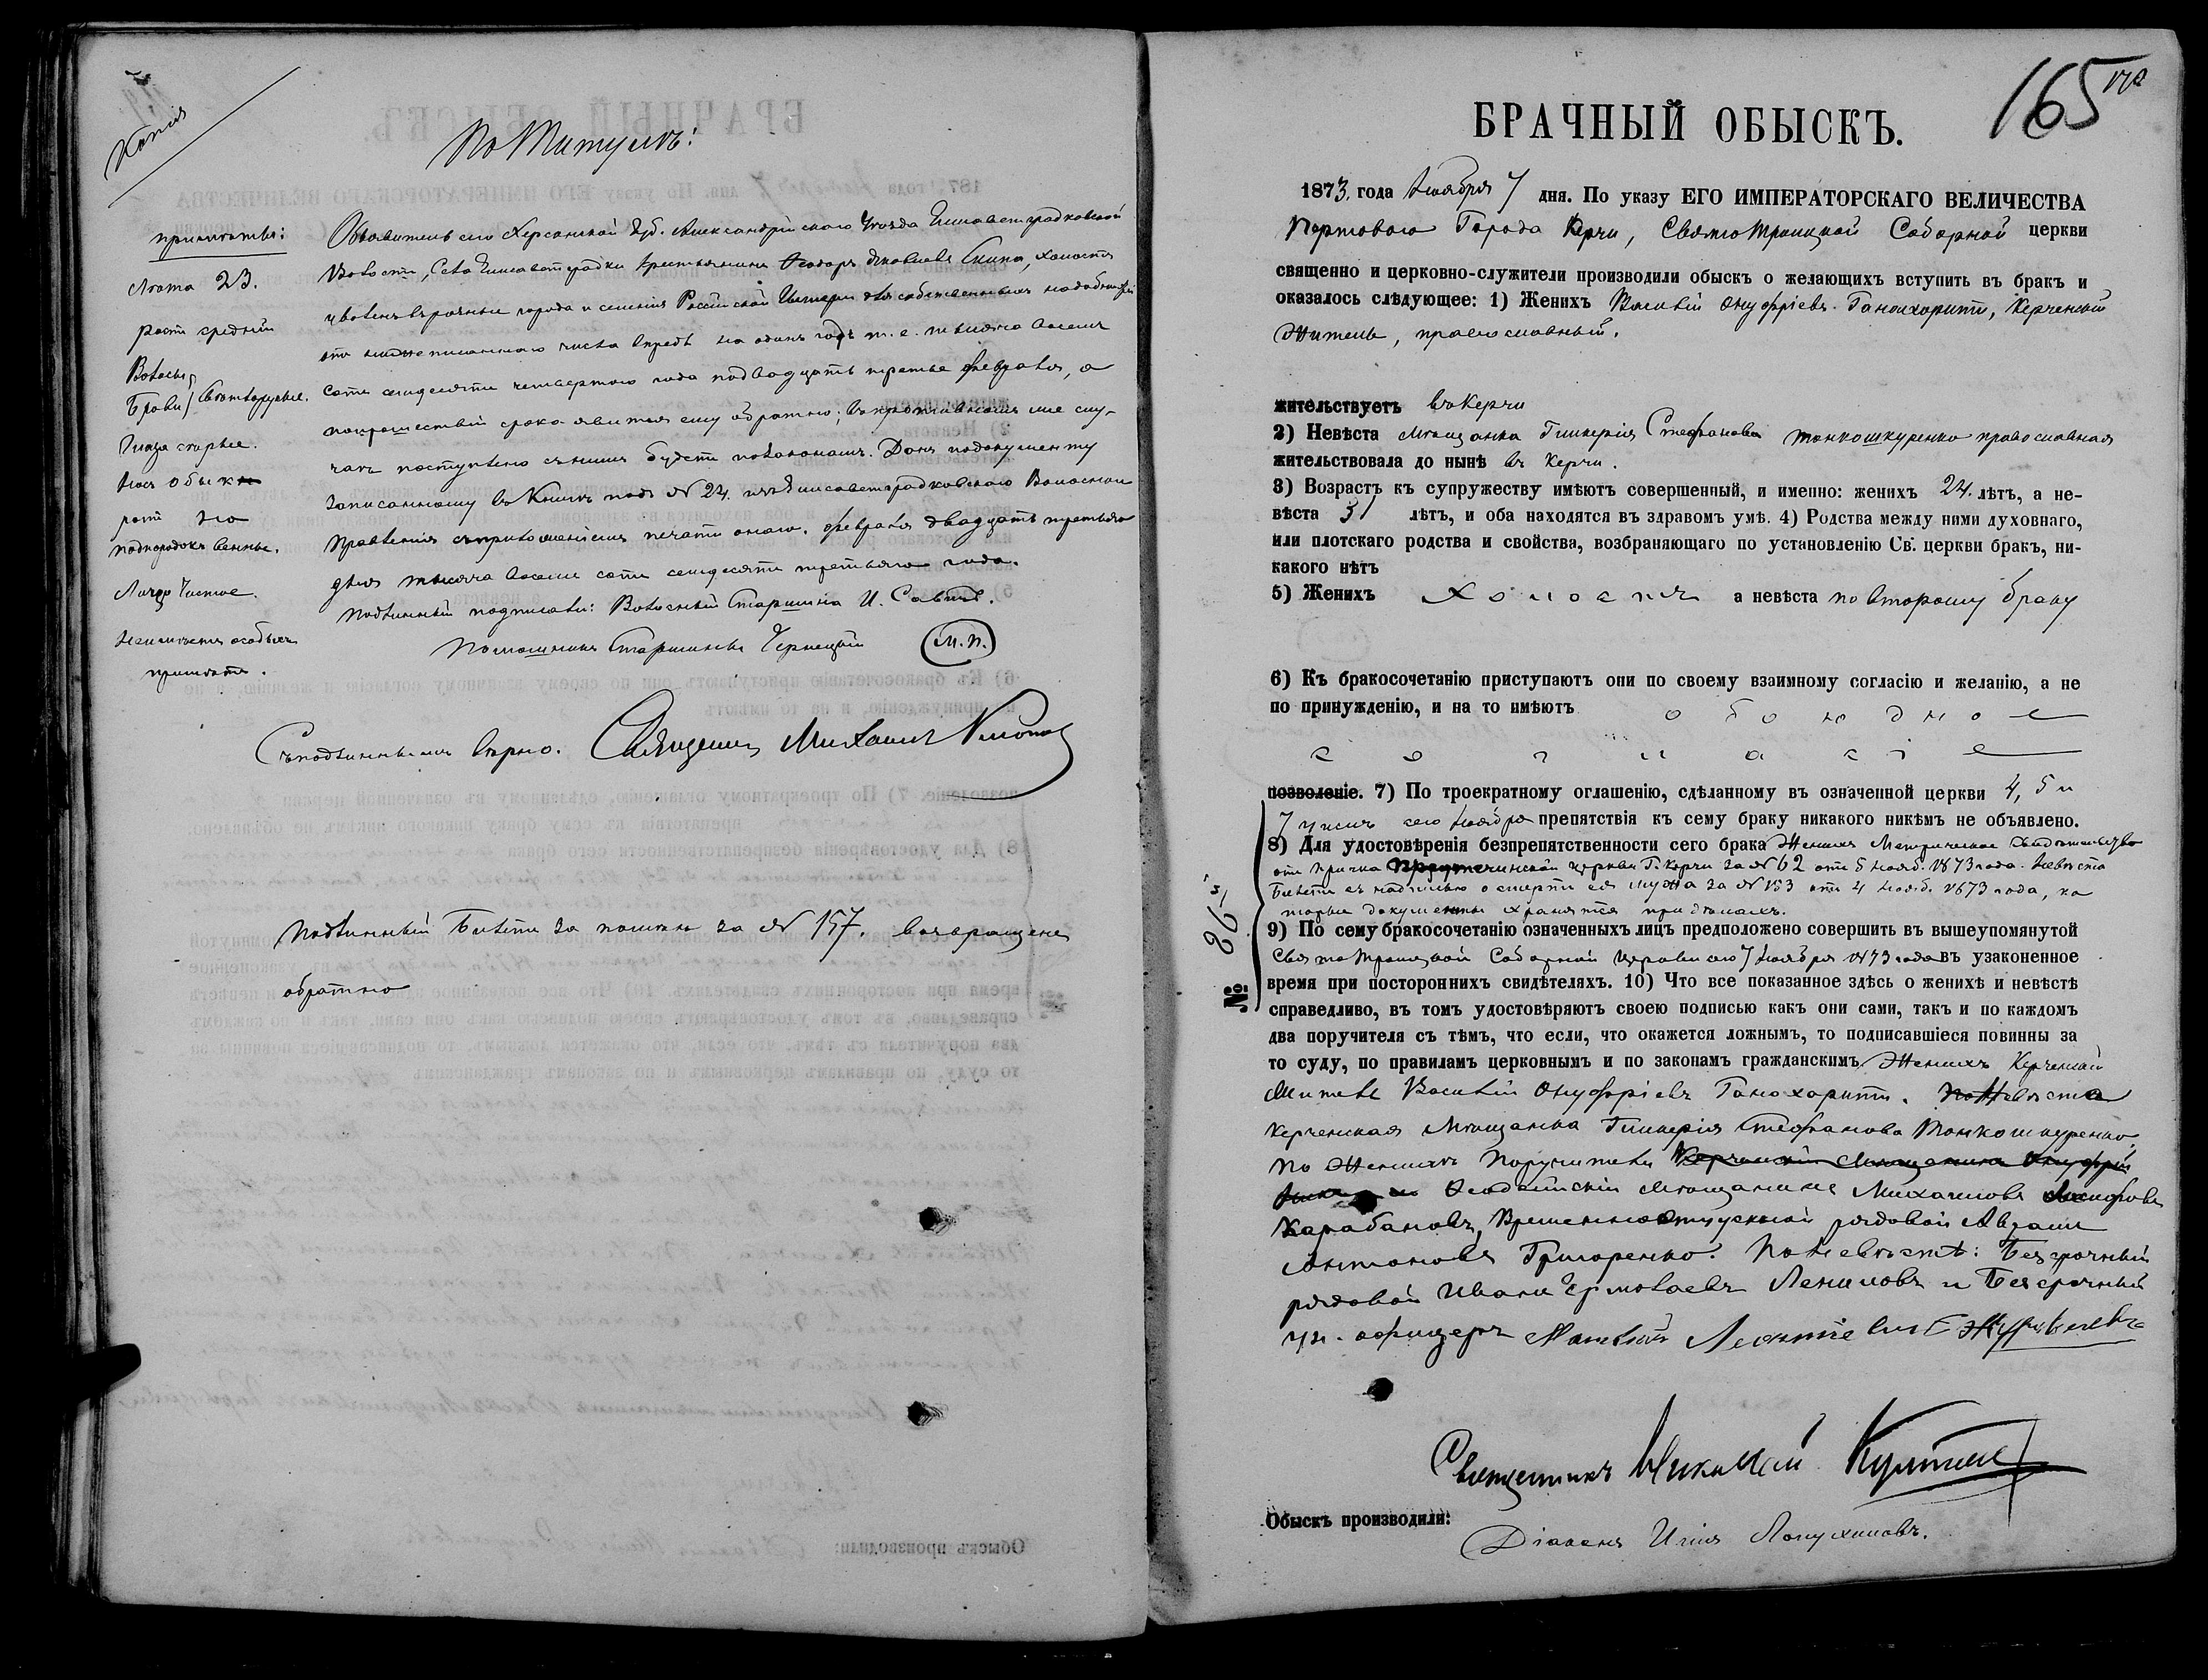 Копія
По Титулѣ:
примѣты:
Лѣта 23.
ростъ средній
Волосы,
Брови } Свѣтлорусые.
Глаза сѣрые.
Носъ обыкн
ротъ но
подбородокъ венные.
Лицо Чистое.
Неимѣетъ особыхъ
примѣтъ.
Объявитель сего Херсонской Губ. Александрійскаго Уѣзда Елисаветградковской
Волости, Села Елисаветградки крестьянинъ Ѳеодоръ Яковлевъ Скипа, холостъ
уволенъ въ разные города и селенія Россійской Имперіи для собственныхъ надобностей
отъ нижеписаннаго числа впредь на одинъ годъ т. е. тысяча восемь
сотъ семдесятъ четвертаго года подвадцать третье февраля, а
попрошествіи срока явится ему обратно; въ противномъ же слу-
чаѣ поступлено съ нимъ будетъ по законамъ. Данъ подокументу
записанному въ Книгѣ подъ № 24. изъ Елисаветградковскаго Волоснаго
Правленія съ приложеніемъ печати онаго. февраля двадцать третьяго
дня тысяча восемь сотъ семдесятъ третьяго года.
Подлинный подписали: Волосный Старшина И.
Помошникъ Старшины Чернецкій (М.П.)
Съ подлиннымъ вѣрно. Священникъ Михаилъ
Подлинный Билетъ за полугод за № 157. возвращенъ
обратно
165
БРАЧНЫЙ ОБЫСКЪ.
1873. года Ноября 7 дня. По указу ЕГО ИМПЕРАТОРСКАГО ВЕЛИЧЕСТВА
Портоваго Города Керчи, Свято Троицкой Соборной церкви
священно и церковно-служители производили обыскъ о желающихъ вступить въ бракъ и
оказалось слѣдующее: 1) Женихъ Василій Онуфріевъ Ганохаритъ, Керченскій
Житель, православный.
жительствуетъ въ Керчи
2) Невѣста Мѣщанка Гликерія Стефанова Тонкошкуренко православная
жительствовала до нынѣ въ Керчи.
3) Возрастъ къ супружеству имѣютъ совершенный, и именно: женихъ 24. лѣтъ, а не-
вѣста 31 лѣтъ, и оба находятся въ здравомъ умѣ. 4) Родства между ними духовнаго,
или плотскаго родства и свойства, возбраняющаго по установленію Св. церкви бракъ, ни-
какого нѣтъ
5) Женихъ холостъ а невѣста по второму браку
6) Къ бракосочетанію приступаютъ они по своему взаимному согласію и желанію, а не
по принужденію, и на то имѣютъ обоюдное
согласіе
позволеніе. 7) По троекратному оглашенію, сдѣланному въ означенной церкви 4, 5 и
7 числъ сего Ноября препятствія къ сему браку никакого никѣмъ не объявлено.
8) Для удостовѣренія безпрепятственности сего брака Женихъ Метрическое Свидѣтельство
отъ причта Предтеченской церкви Г. Керчи за № 62 отъ 5 Нояб. 1873 года. Невѣста
Билетъ съ надписью о смерти ея мужа за № 153 отъ 4 Нояб. 1873 года, ко
торые документы хранятся при дѣлахъ.
9) По сему бракосочетанію означенныхъ лицъ предположено совершить въ вышеупомянутой
Свято Троицкой Соборной церкви сего 7 Ноября 1873 года въ узаконенное
время при постороннихъ свидѣтеляхъ. 10) Что все показанное здѣсь о женихѣ и невѣстѣ
справедливо, въ томъ удостовѣряютъ своею подписью какъ они сами, такъ и по каждомъ
два поручителя съ тѣмъ, что если, что окажется ложнымъ, то подписавшіеся повинны за
то суду, по правиламъ церковнымъ и по законамъ гражданскимъ Женихъ Керченскій
Житель Василій Онуфріевъ Ганохаритъ. По Невѣста
Керченская Мѣщанка Гликерія Стефанова Тонкошкуренко
По Женихѣ Поручители Керченскій Мѣщанинъ Онуфрій
Ѳеодосійскій Мѣщанинъ Михаилъ
Карабановъ, Временноотпускной рядовой Аврамъ
Антоновъ Григоренко. По Невѣстѣ: Безсрочный
рядовой Иванъ Ермолаевъ и Безсрочный
ун. офицеръ Матвѣй Леонтіевъ
№ 92
Священникъ Николай
Обыскъ производили:
Діаконъ Илія Лопушиновъ.